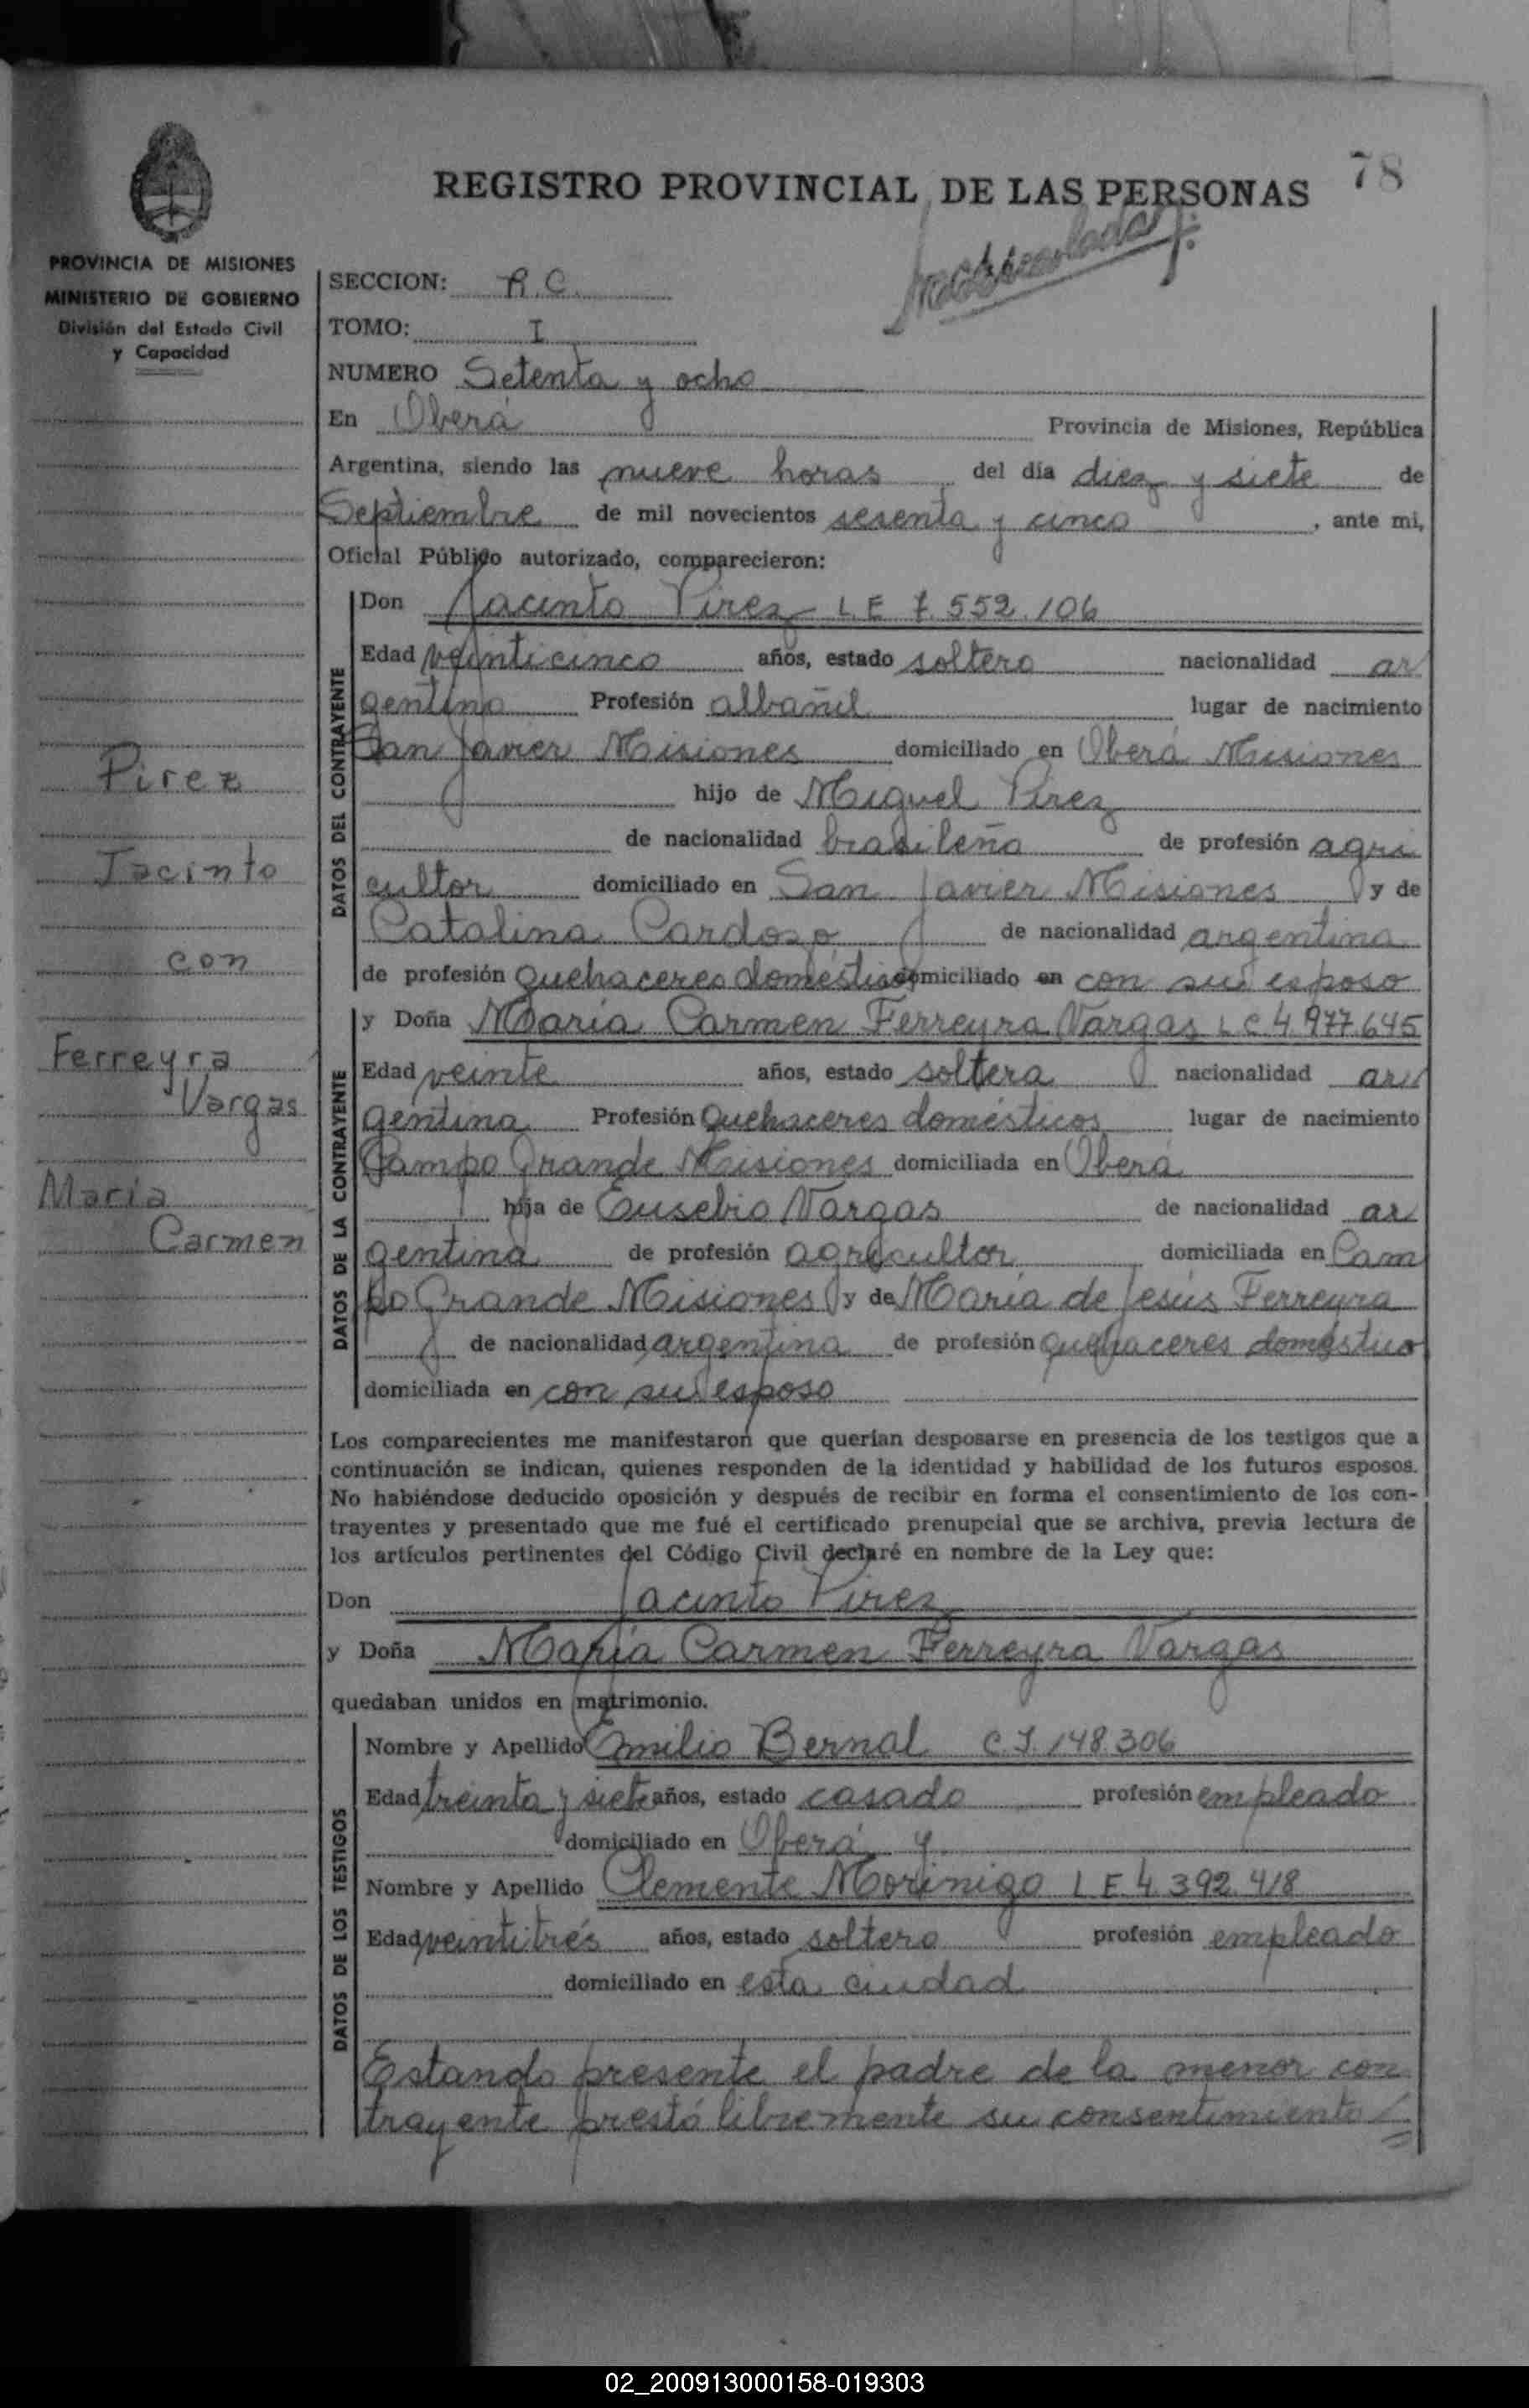 78
REGISTRO PROVINCIAL DE LAS PERSONAS
Matriculado
PROVINCIA DE MISIONES
MINISTERIO DE GOBIERNO
División del Estado Civil
y Capacidad
SECCION: R.C.
TOMO: I
NUMERO Setenta y ocho
En Oberá Provincia de Misiones, República
Argentina, siendo las nueve horas del día diez y siete de
Septiembre de mil novecientos sesenta y cinco, ante mi,
Oficial Público autorizado, comparecieron:
DATOS DEL CONTRAYENTE
Don Jacinto Pirez L.E 7.552.106
Edad veinticinco años, estado soltero nacionalidad ar
gentino Profesión albañil lugar de nacimiento
San Javier Misiones domiciliado en Oberá Misiones
hijo de Miguel Pirez
de nacionalidad brasileño de profesión agri
cultor domiciliado en San Javier Misiones y de
Catalina Cardozo de nacionalidad argentina
de profesión Quehaceres domésticos domiciliado en con su esposo
Pirez
Jacinto
con
Ferreyra
Vargas
María
Carmen
DATOS DE LA CONTRAYENTE
y Doña María Carmen Ferreyra Vargas L C 4.977.645
Edad veinte años, estado soltera nacionalidad ar
gentina Profesión Quehaceres domésticos lugar de nacimiento
Campo Grande Misiones domiciliada en Oberá
hija de Eusebio Vargas de nacionalidad ar
gentina de profesión agricultor domiciliada en Cam
po Grande Misiones y de María de Jesús Ferreyra
de nacionalidad argentina de profesión quehaceres domestico
domiciliada en con su esposo
Los comparecientes me manifestaron que querían desposarse en presencia de los testigos que a
continuación se indican, quienes responden de la identidad y habilidad de los futuros esposos.
No habiéndose deducido oposición y después de recibir en forma el consentimiento de los con-
trayentes y presentado que me fué el certificado prenupcial que se archiva, previa lectura de
los artículos pertinentes del Código Civil declaré en nombre de la Ley que:
Don Jacinto Pirez
y Doña María Carmen Ferreyra Vargas
quedaban unidos en matrimonio.
DATOS DE LOS TESTIGOS
Nombre y Apellido Emilio Bernal C.I. 148.306
Edad treinta y siete años, estado casado profesión empleado
domiciliado en Oberá y
Nombre y Apellido Clemente Morinigo L E. 4.392.418
Edad veintitrés años, estado soltero profesión empleado
domiciliado en esta ciudad
Estando presente el padre de la menor con
trayente prestó libremente su consentimiento
02_200913000158-019303